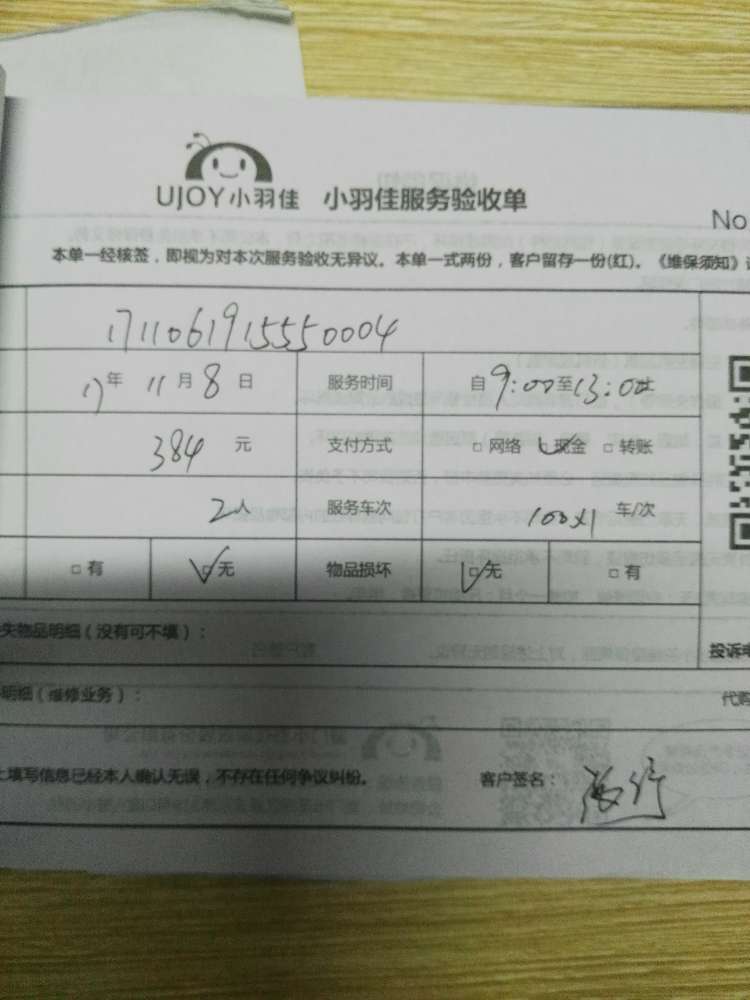 UJOY小羽佳 小羽佳服务验收单
No
本单一经核签，即视为对本次服务验收无异议。本单一式两份，客户留存一份(红)。《维保须知》
17110619155550004
17年 11月8日 服务时间 自9:00至13:00止
384元 支付方式 □网络 □现金 □转账
2人 服务车次 100x1 车/次
□有 □无 物品损坏 □无 □有
失物品明细（没有可不填）： 投诉电
明细（维修业务）： 代购
上填写信息已经本人确认无误，不存在任何争议纠纷。 客户签名：